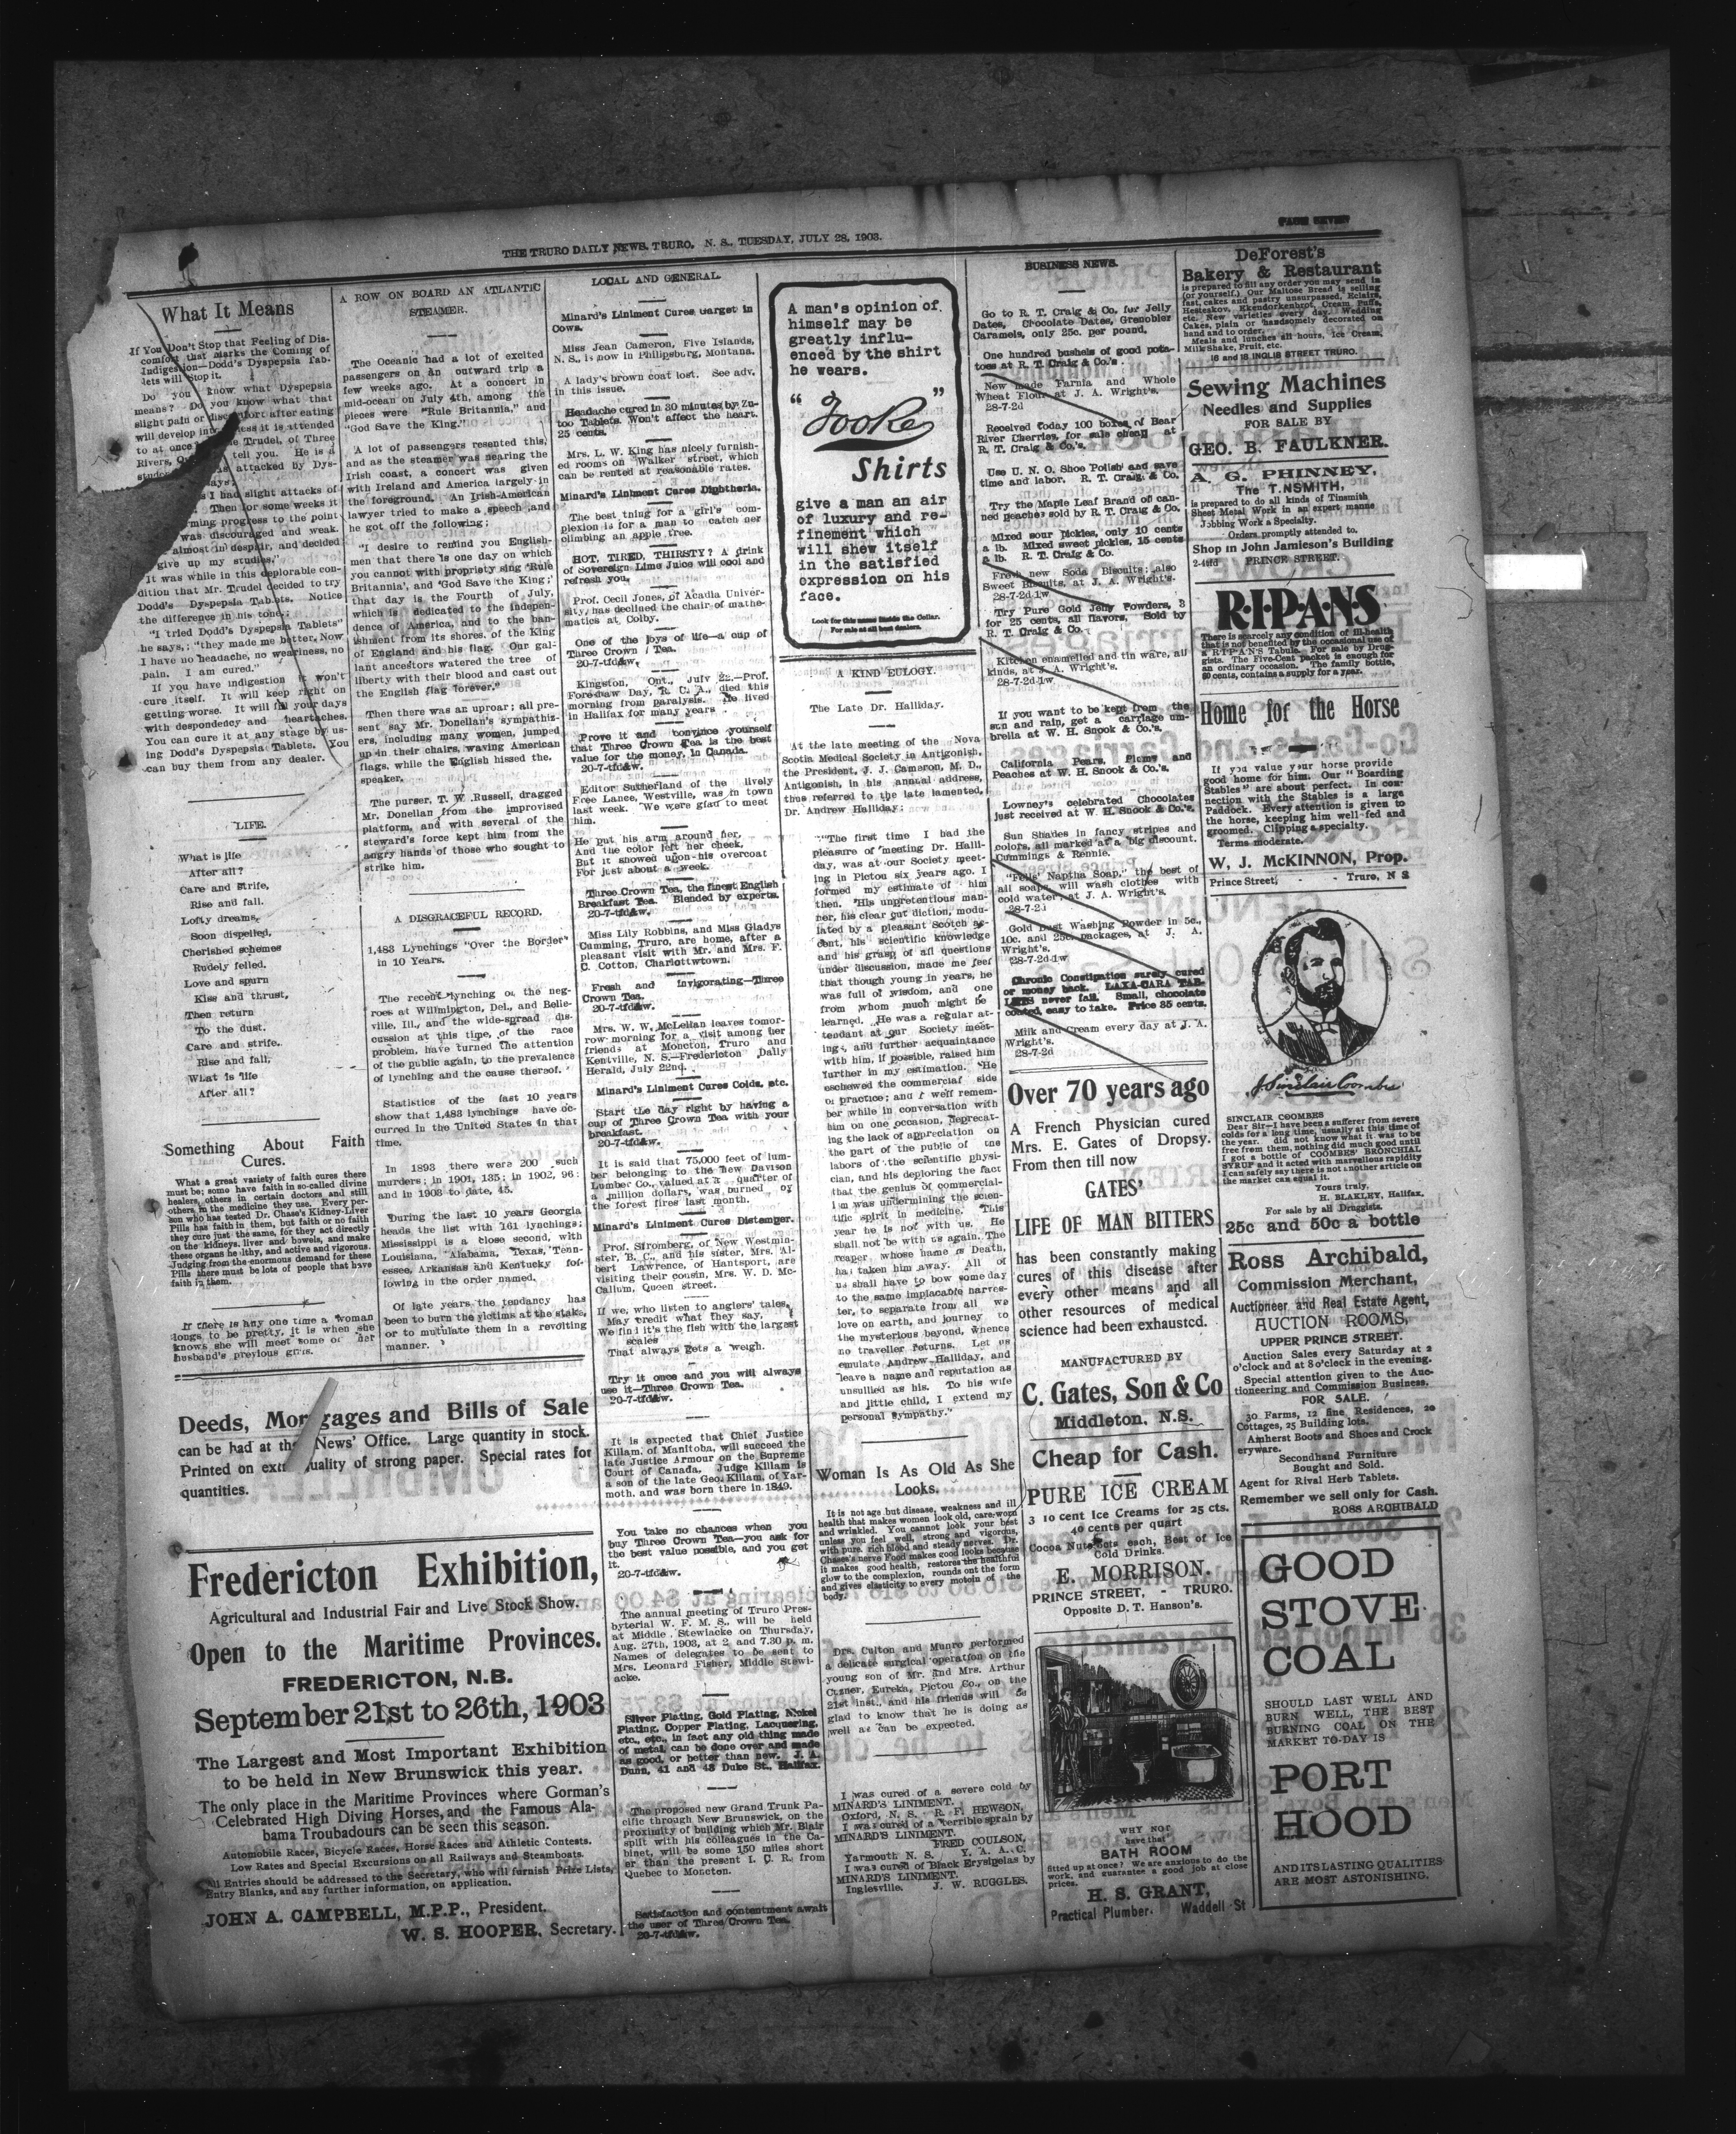 PAGE SEVEN
THE TRURO DAILY NEWS, TRURO, N. S., TUESDAY, JULY 28, 1903.
What It Means
If You Don't Stop that Feeling of Dis-
comfort that Marks the Coming of
Indigestion—Dodd's Dyspepsia Tab-
lets will Stop it.
Do you know what Dyspepsia
means? Do you know what that
slight pain or discomfort after eating
will develop into unless it is attended
to at once? Trudel, of Three
Rivers, tell you. He is a
attacked by Dys-
says:
I had slight attacks of
Then for some weeks it
progress to the point
was discouraged and weak.
almost in despair, and decided
give up my studies."
It was while in this deplorable con-
dition that Mr. Trudel decided to try
Dodd's Dyspepsia Tablets. Notice
the difference in his tone:
"I tried Dodd's Dyspepsia Tablets"
he says,: "they made me better. Now
I have no headache, no weariness, no
pain. I am cured."
If you have indigestion it won't
cure itself. It will keep right on
getting worse. It will fill your days
with despondency and heartaches.
You can cure it at any stage by us-
ing Dodd's Dyspepsia Tablets. You
can buy them from any dealer.
LIFE.
What is life
After all?
Care and Strife,
Rise and fall.
Lofty dreams
Soon dispelled,
Cherished schemes
Rudely felled.
Love and spurn
Kiss and thrust,
Then return
To the dust.
Care and strife,
Rise and fall,
What is life
After all?
Something About Faith
Cures.
What a great variety of faith cures there
must be; some have faith in so-called divine
healers, others in certain doctors and still
others in the medicine they use. Every per-
son who has tested Dr. Chase's Kidney-Liver
Pills has faith in them, but faith or no faith
they cure just the same, for they act directly
on the kidneys, liver and bowels, and make
these organs healthy, and active and vigorous.
Judging from the enormous demand for these
Pills there must be lots of people that have
faith in them.
If there is any one time a woman
longs to be pretty, it is when she
knows she will meet some of her
husband's previous girls.
A ROW ON BOARD AN ATLANTIC
STEAMER.
The Oceanic had a lot of excited
passengers on an outward trip a
few weeks ago. At a concert in
mid-ocean on July 4th, among the
pieces were "Rule Britannia," and
"God Save the King."
A lot of passengers resented this,
and as the steamer was nearing the
Irish coast, a concert was given
with Ireland and America largely in
the foreground. An Irish-American
lawyer tried to make a speech and
he got off the following:
"I desire to remind you English-
men that there is one day on which
you cannot with propriety sing 'Rule
Britannia', and 'God Save the King;'
that day is the Fourth of July,
which is dedicated to the indepen-
dence of America, and to the ban-
ishment from its shores, of the King
of England and his flag. Our gal-
lant ancestors watered the tree of
liberty with their blood and cast out
the English flag forever."
Then there was an uproar; all pre-
sent say Mr. Donellan's sympathiz-
ers, including many women, jumped
up in their chairs, waving American
flags, while the English hissed the.
speaker.
The purser, T. W. Russell, dragged
Mr. Donellan from the improvised
platform, and with several of the
steward's force kept him from the
angry hands of those who sought to
strike him.
A DISGRACEFUL RECORD.
1,483 Lynchings "Over the Border"
in 10 Years.
The recent lynching of the neg-
roes at Wilmington, Del., and Belle-
ville, Ill., and the wide-spread dis-
cussion at this time, of the race
problem, have turned the attention
of the public again, to the prevalence
of lynching and the cause thereof.
Statistics of the last 10 years
show that 1,483 lynchings have oc-
curred in the United States in that
time.
In 1893 there were 200 such
murders; in 1901, 135; in 1902, 96:
and in 1903 to date, 45.
During the last 10 years Georgia
heads the list with 161 lynchings;
Mississippi is a close second, with
Louisiana, Alabama, Texas, Tenn-
essee, Arkansas and Kentucky fol-
lowing in the order named.
Of late years the tendency has
been to burn the victims at the stake,
or to mutulate them in a revolting
manner.
Deeds, Mortgages and Bills of Sale
can be had at the News' Office. Large quantity in stock.
Printed on extra quality of strong paper. Special rates for
quantities.
Fredericton Exhibition,
Agricultural and Industrial Fair and Live Stock Show.
Open to the Maritime Provinces.
FREDERICTON, N.B.
September 21st to 26th, 1903
The Largest and Most Important Exhibition
to be held in New Brunswick this year.
The only place in the Maritime Provinces where Gorman's
Celebrated High Diving Horses, and the Famous Ala-
bama Troubadours can be seen this season.
Automobile Races, Bicycle Races, Horse Races and Athletic Contests.
Low Rates and Special Excursions on all Railways and Steamboats.
All Entries should be addressed to the Secretary, who will furnish Prize Lists,
Entry Blanks, and any further information, on application.
JOHN A. CAMPBELL, M.P.P., President.
W. S. HOOPER, Secretary.
LOCAL AND GENERAL.
Minard's Liniment Cures Garget in
Cows.
Miss Jean Cameron, Five Islands,
N. S., is now in Philipsburg, Montana.
A lady's brown coat lost. See adv.
in this issue.
Headache cured in 30 minutes by Zu-
too Tablets. Won't affect the heart.
25 cents.
Mrs. L. W. King has nicely furnish-
ed rooms on Walker street, which
can be rented at reasonable rates.
Minard's Liniment Cures Diphtheria.
The best thing for a girl's com-
plexion is for a man to catch her
climbing an apple tree.
HOT, TIRED, THIRSTY? A drink
of Sovereign Lime Juice will cool and
refresh you.
Prof. Cecil Jones, of Acadia Univer-
sity, has declined the chair of mathe-
matics at Colby.
One of the joys of life—a cup of
Three Crown Tea.
20-7-tfd&w.
Kingston, Ont., July 22.—Prof.
Foreshaw Day, R. C. A., died this
morning from paralysis. He lived
in Halifax for many years.
Prove it and convince yourself
that Three Crown Tea is the best
value for the money, in Canada.
20-7-tfd&w.
Editor Sutherland of the lively
Free Lance, Westville, was in town
last week. We were glad to meet
him.
He put his arm around her,
And the color left her cheek,
But it showed upon his overcoat
For just about a week.
Three Crown Tea, the finest English
Breakfast Tea. Blended by experts.
20-7-tfd&w.
Miss Lily Robbins, and Miss Gladys
Cumming, Truro, are home, after a
pleasant visit with Mr. and Mrs. F.
C. Cotton, Charlottetown.
Fresh and invigorating—Three
Crown Tea.
20-7-tfd&w.
Mrs. W. W. McLellan leaves tomor-
row morning for a visit among her
friends at Moncton, Truro and
Kentville, N. S.—Fredericton Daily
Herald, July 22nd.
Minard's Liniment Cures Colds, etc.
Start the day right by having a
cup of Three Crown Tea with your
breakfast.
20-7-tfd&w.
It is said that 75,000 feet of lum-
ber belonging to the New Davison
Lumber Co., valued at a quarter of
a million dollars, was burned by
the forest fires last month.
Minard's Liniment Cures Distemper.
Prof. Stromberg, of New Westmin-
ster, B. C., and his sister, Mrs. Al-
bert Lawrence, of Hantsport, are
visiting their cousin, Mrs. W. D. Mc-
Callum, Queen street.
If we, who listen to anglers' tales,
May credit what they say,
We find it's the fish with the largest
scales
That always gets a weigh.
Try it once and you will always
use it—Three Crown Tea.
20-7-tfd&w.
It is expected that Chief Justice
Killam, of Manitoba, will succeed the
late Justice Armour on the Supreme
Court of Canada. Judge Killam is
a son of the late Geo. Killam, of Yar-
moth, and was born there in 1849.
You take no chances when you
buy Three Crown Tea—you ask for
the best value possible, and you get
it.
20-7-tfd&w.
The annual meeting of Truro Pres-
byterial W. F. M. S., will be held
at Middle Stewiacke on Thursday,
Aug. 27th, 1903, at 2 and 7.30 p. m.
Names of delegates to be sent to
Mrs. Leonard Fisher, Middle Stewi-
acke.
Silver Plating, Gold Plating, Nickel
Plating, Copper Plating, Lacquering,
etc., etc., in fact any old thing made
of metal, can be done over and made
as good, or better than new. J. A.
Dunn, 41 and 43 Duke St., Halifax.
The proposed new Grand Trunk Pa-
cific through New Brunswick, on the
proximity of building which Mr. Blair
split with his colleagues in the Ca-
binet, will be some 150 miles short
er than the present I. C. R. from
Quebec to Moncton.
Satisfaction and contentment await
the user of Three Crown Tea.
20-7-tfd&w.
A man's opinion of
himself may be
greatly influ-
enced by the shirt
he wears.
"Tooke"
Shirts
give a man an air
of luxury and re-
finement which
will shew itself
in the satisfied
expression on his
face.
Look for this name inside the Collar.
For sale at all best dealers.
A KIND EULOGY.
The Late Dr. Halliday.
At the late meeting of the Nova
Scotia Medical Society in Antigonish,
the President, J. J. Cameron, M. D.,
Antigonish, in his annual address,
thus referred to the late lamented,
Dr. Andrew Halliday:
"The first time I had the
pleasure of meeting Dr. Halli-
day, was at our Society meet-
ing in Pictou six years ago. I
formed my estimate of him
then. His unpretentious man-
ner, his clear cut diction, modu-
lated by a pleasant Scotch ac-
cent, his scientific knowledge
and his grasp of all questions
under discussion, made me feel
that though young in years, he
was full of wisdom, and one
from whom much might be
learned. He was a regular at-
tendant at our Society meet-
ings, and further acquaintance
with him, if possible, raised him
further in my estimation. He
eschewed the commercial side
of practice; and I well remem-
ber while in conversation with
him on one occasion, deprecat-
ing the lack of appreciation on
the part of the public of the
labors of the scientific physi-
cian, and his deploring the fact
that the genius of commercial-
ism was undermining the scien-
tific spirit in medicine. This
year he is not with us. He
shall not be with us again. The
reaper whose name is Death,
has taken him away. All of
us shall have to bow some day
to the same implacable harves-
ter, to separate from all we
love on earth, and journey to
the mysterious beyond, whence
no traveller returns. Let us
emulate Andrew Halliday, and
leave a name and reputation as
unsullied as his. To his wife
and little child, I extend my
personal sympathy."
Woman Is As Old As She
Looks.
It is not age but disease, weakness and ill
health that makes women look old, care-worn
and wrinkled. You cannot look your best
unless you feel well, strong and vigorous,
with pure, rich blood and steady nerves. Dr.
Chases's nerve Food makes good looks because
it makes good health, restores the healthful
glow to the complexion, rounds out the form
and gives elasticity to every motoin of the
body.
Drs. Culton and Munro performed
a delicate surgical operation on the
young son of Mr. and Mrs. Arthur
Cozner, Eureka, Pictou Co., on the
21st inst., and his friends will be
glad to know that he is doing as
well as can be expected.
I was cured of a severe cold by
MINARD'S LINIMENT.
Oxford, N. S. R. F. HEWSON.
I was cured of a terrible sprain by
MINARD'S LINIMENT.
FRED COULSON,
Yarmouth N. S. Y. A. A. C.
I was cured of Black Erysipelas by
MINARD'S LINIMENT.
Inglesville. J. W. RUGGLES.
BUSINESS NEWS.
Go to R. T. Craig & Co. for Jelly
Dates, Chocolate Dates, Grenobler
Caramels, only 25c. per pound.
One hundred bushels of good pota-
toes at R. T. Craig & Co.'s.
New made Farnia and Whole
Wheat Flour at J. A. Wright's.
28-7-2d
Received today 100 boxes of Bear
River Cherries, for sale cheap at
R. T. Craig & Co.'s.
Use U. N. O. Shoe Polish and save
time and labor. R. T. Craig & Co.
Try the Maple Leaf Brand of can-
ned peaches sold by R. T. Craig & Co.
Mixed sour pickles, only 10 cents
a lb. Mixed sweet pickles, 15 cents
a lb. R. T. Craig & Co.
Fresh new Soda Biscuits; also
Sweet Biscuits, at J. A. Wright's.
28-7-2d-1w
Try Pure Gold Jelly Powders, 3
for 25 cents, all flavors. Sold by
R. T. Craig & Co.
Kitchen enamelled and tin ware, all
kinds, at J. A. Wright's.
28-7-2d-1w
If you want to be kept from the
sun and rain, get a carriage um-
brella at W. H. Snook & Co.'s.
California Pears, Plums and
Peaches at W. H. Snook & Co.'s.
Lowney's celebrated Chocolates
just received at W. H. Snook & Co.'s.
Sun Shades in fancy stripes and
colors, all marked at a big discount.
Cummings & Rennie.
"Fells' Naptha Soap," the best of
all soaps, will wash clothes with
cold water, at J. A. Wright's.
28-7-2d
Gold Dust Washing Powder in 5c.,
10c. and 25c. packages, at J. A.
Wright's.
28-7-2d-1w
Chronic Constipation surely cured
or money back. LAXA-CARA TAB-
LETS never fail. Small, chocolate
coated, easy to take. Price 35 cents.
Milk and Cream every day at J. A.
Wright's.
28-7-2d
Over 70 years ago
A French Physician cured
Mrs. E. Gates of Dropsy.
From then till now
GATES'
LIFE OF MAN BITTERS
has been constantly making
cures of this disease after
every other means and all
other resources of medical
science had been exhausted.
MANUFACTURED BY
C. Gates, Son & Co
Middleton, N.S.
Cheap for Cash.
PURE ICE CREAM
3 10 cent Ice Creams for 25 cts.
40 cents per quart
Cocoa Nuts 5cts each, Best of Ice
Cold Drinks.
E. MORRISON.
PRINCE STREET, - TRURO.
Opposite D. T. Hanson's.
WHY NOT
have that
BATH ROOM
fitted up at once? We are anxious to do the
work, and guarantee a good job at close
prices.
H. S. GRANT,
Practical Plumber. Waddell St
DeForest's
Bakery & Restaurant
is prepared to fill any order you may send in
(or yourself.) Our Maltose Bread is selling
fast, cakes and pastry unsurpassed, Eclairs,
Hesteskov, Ekendorkenbrot, Cream Puffs,
etc. New varieties every day. Wedding
Cakes, plain or handsomely decorated on
hand and to order.
Meals and lunches all hours, Ice Cream,
Milk Shake, Fruit, etc.
16 and 18 INGLIS STREET TRURO.
Sewing Machines
Needles and Supplies
FOR SALE BY
GEO. B. FAULKNER.
A. G. PHINNEY,
The T.NSMITH,
is prepared to do all kinds of Tinsmith
Sheet Metal Work in an expert manne
Jobbing Work a Specialty.
Orders promptly attended to.
Shop in John Jamieson's Building
2-4tfd PRINCE STREET.
R·I·P·A·N·S
There is scarcely any condition of ill-health
that is not benefited by the occasional use of
a R·I·P·A·N·S Tabule. For sale by Drug-
gists. The Five-Cent packet is enough for
an ordinary occasion. The family bottle,
60 cents, contains a supply for a year.
Home for the Horse
If you value your horse provide
good home for him. Our "Boarding
Stables" are about perfect. In con-
nection with the Stables is a large
Paddock. Every attention is given to
the horse, keeping him well-fed and
groomed. Clipping a specialty.
Terms moderate.
W. J. McKINNON, Prop.
Prince Street, - - Truro, N S
J. Sinclair Coombs
SINCLAIR COOMBES
Dear Sir—I have been a sufferer from severe
colds for a long time, usually at this time of
the year. did not know what it was to be
free from them, nothing did much good until
I got a bottle of COOMBES' BRONCHIAL
SYRUP and it acted with marvellous rapidity
I can safely say there is not another article on
the market can equal it.
Yours truly,
H. BLAKLEY, Halifax.
For sale by all Druggists.
25c and 50c a bottle
Ross Archibald,
Commission Merchant,
Auctioneer and Real Estate Agent,
AUCTION ROOMS,
UPPER PRINCE STREET.
Auction Sales every Saturday at 2
o'clock and at 8 o'clock in the evening.
Special attention given to the Auc-
tioneering and Commission Business.
FOR SALE.
30 Farms, 12 fine Residences, 20
Cottages, 25 Building lots.
Amherst Boots and Shoes and Crock
eryware.
Secondhand Furniture
Bought and Sold.
Agent for Rival Herb Tablets.
Remember we sell only for Cash.
ROSS ARCHIBALD
GOOD
STOVE
COAL
SHOULD LAST WELL AND
BURN WELL, THE BEST
BURNING COAL ON THE
MARKET TO-DAY IS
PORT
HOOD
AND ITS LASTING QUALITIES
ARE MOST ASTONISHING.